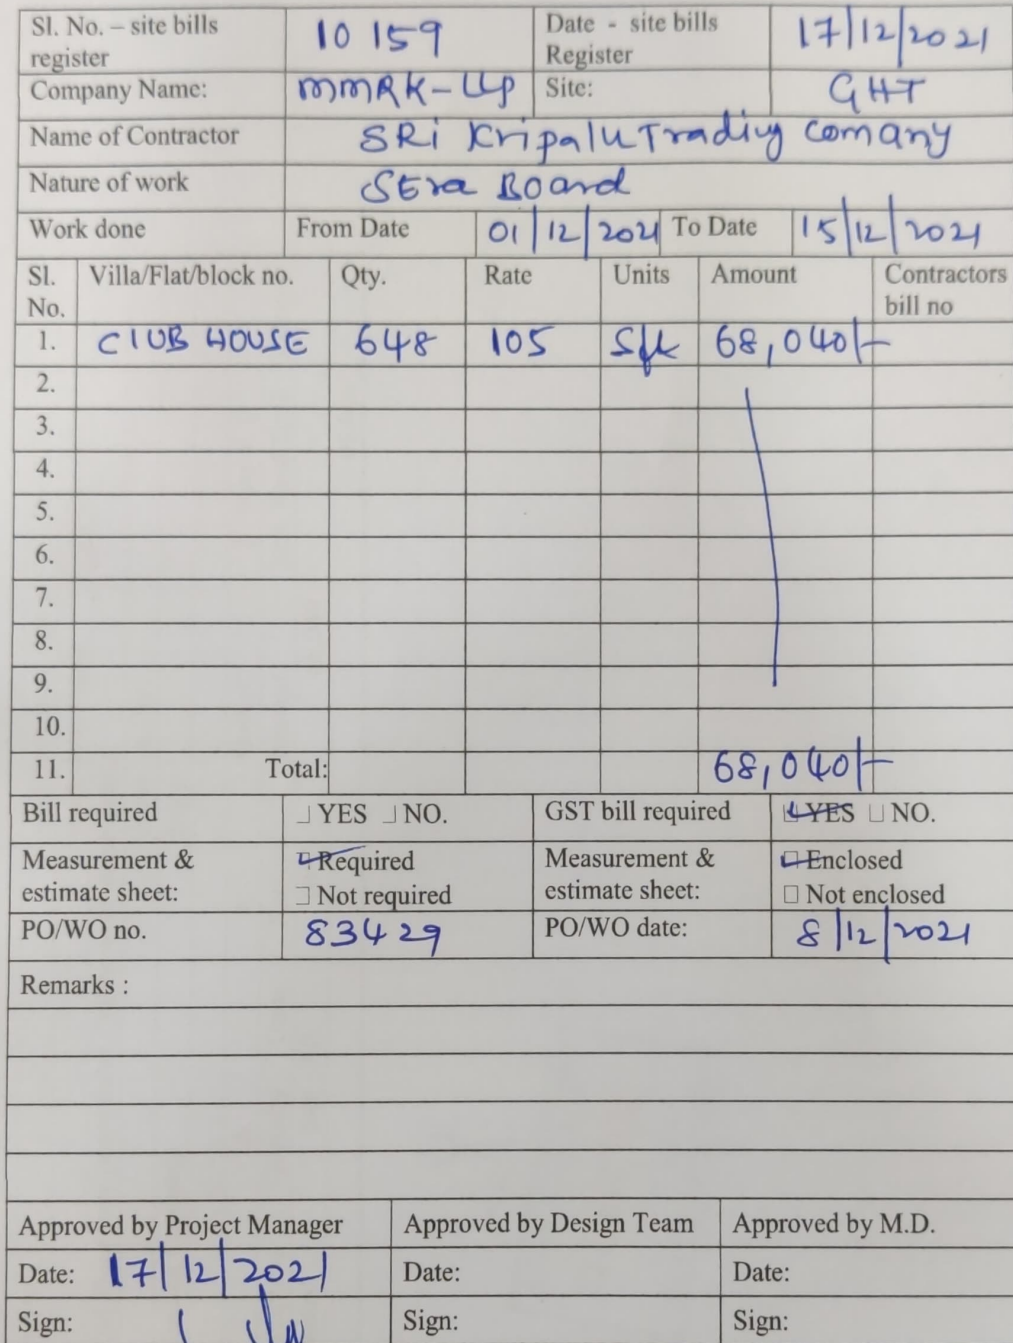 Sl. No. – site bills register 10 159 Date - site bills Register 17/12/2021
Company Name: MMRK-LLP Site: GHT
Name of Contractor SRi Kripalu Trading Comany
Nature of work SEra Board
Work done From Date 01/12/2021 To Date 15/12/2021
Sl. No. Villa/Flat/block no. Qty. Rate Units Amount Contractors bill no
1. ClUB HOUSE 648 105 Sft 68,040/-
2.
3.
4.
5.
6.
7.
8.
9.
10.
11. Total: 68,040/-
Bill required YES NO. GST bill required YES NO.
Measurement & estimate sheet: Required Not required Measurement & estimate sheet: Enclosed Not enclosed
PO/WO no. 83429 PO/WO date: 8/12/2021
Remarks :
Approved by Project Manager Approved by Design Team Approved by M.D.
Date: 17/12/2021 Date: Date:
Sign: Sign: Sign: